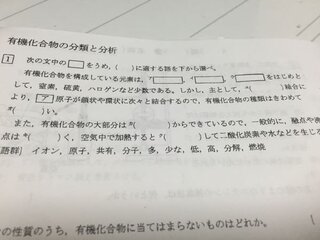 有機化合物の分類と分析
1 次の文中の□をうめ,( )に適する語を下から選べ。
有機化合物を構成している元素は,ア□,イ□,ウ□をはじめと
して,窒素,硫黄,ハロゲンなど少数である。しかし,主として,( )結合に
より ア 原子が鎖状や環状に次々と結合するので,有機化合物の種類はきわめて
( )い。
また,有機化合物の大部分は( )からできているので,一般的に,融点や沸
点は( )く,空気中で加熱すると( )して二酸化炭素や水などを生じる
[語群] イオン,原子,共有,分子,多,少な,低,高,分解,燃焼
の性質のうち,有機化合物に当てはまらないものはどれか。